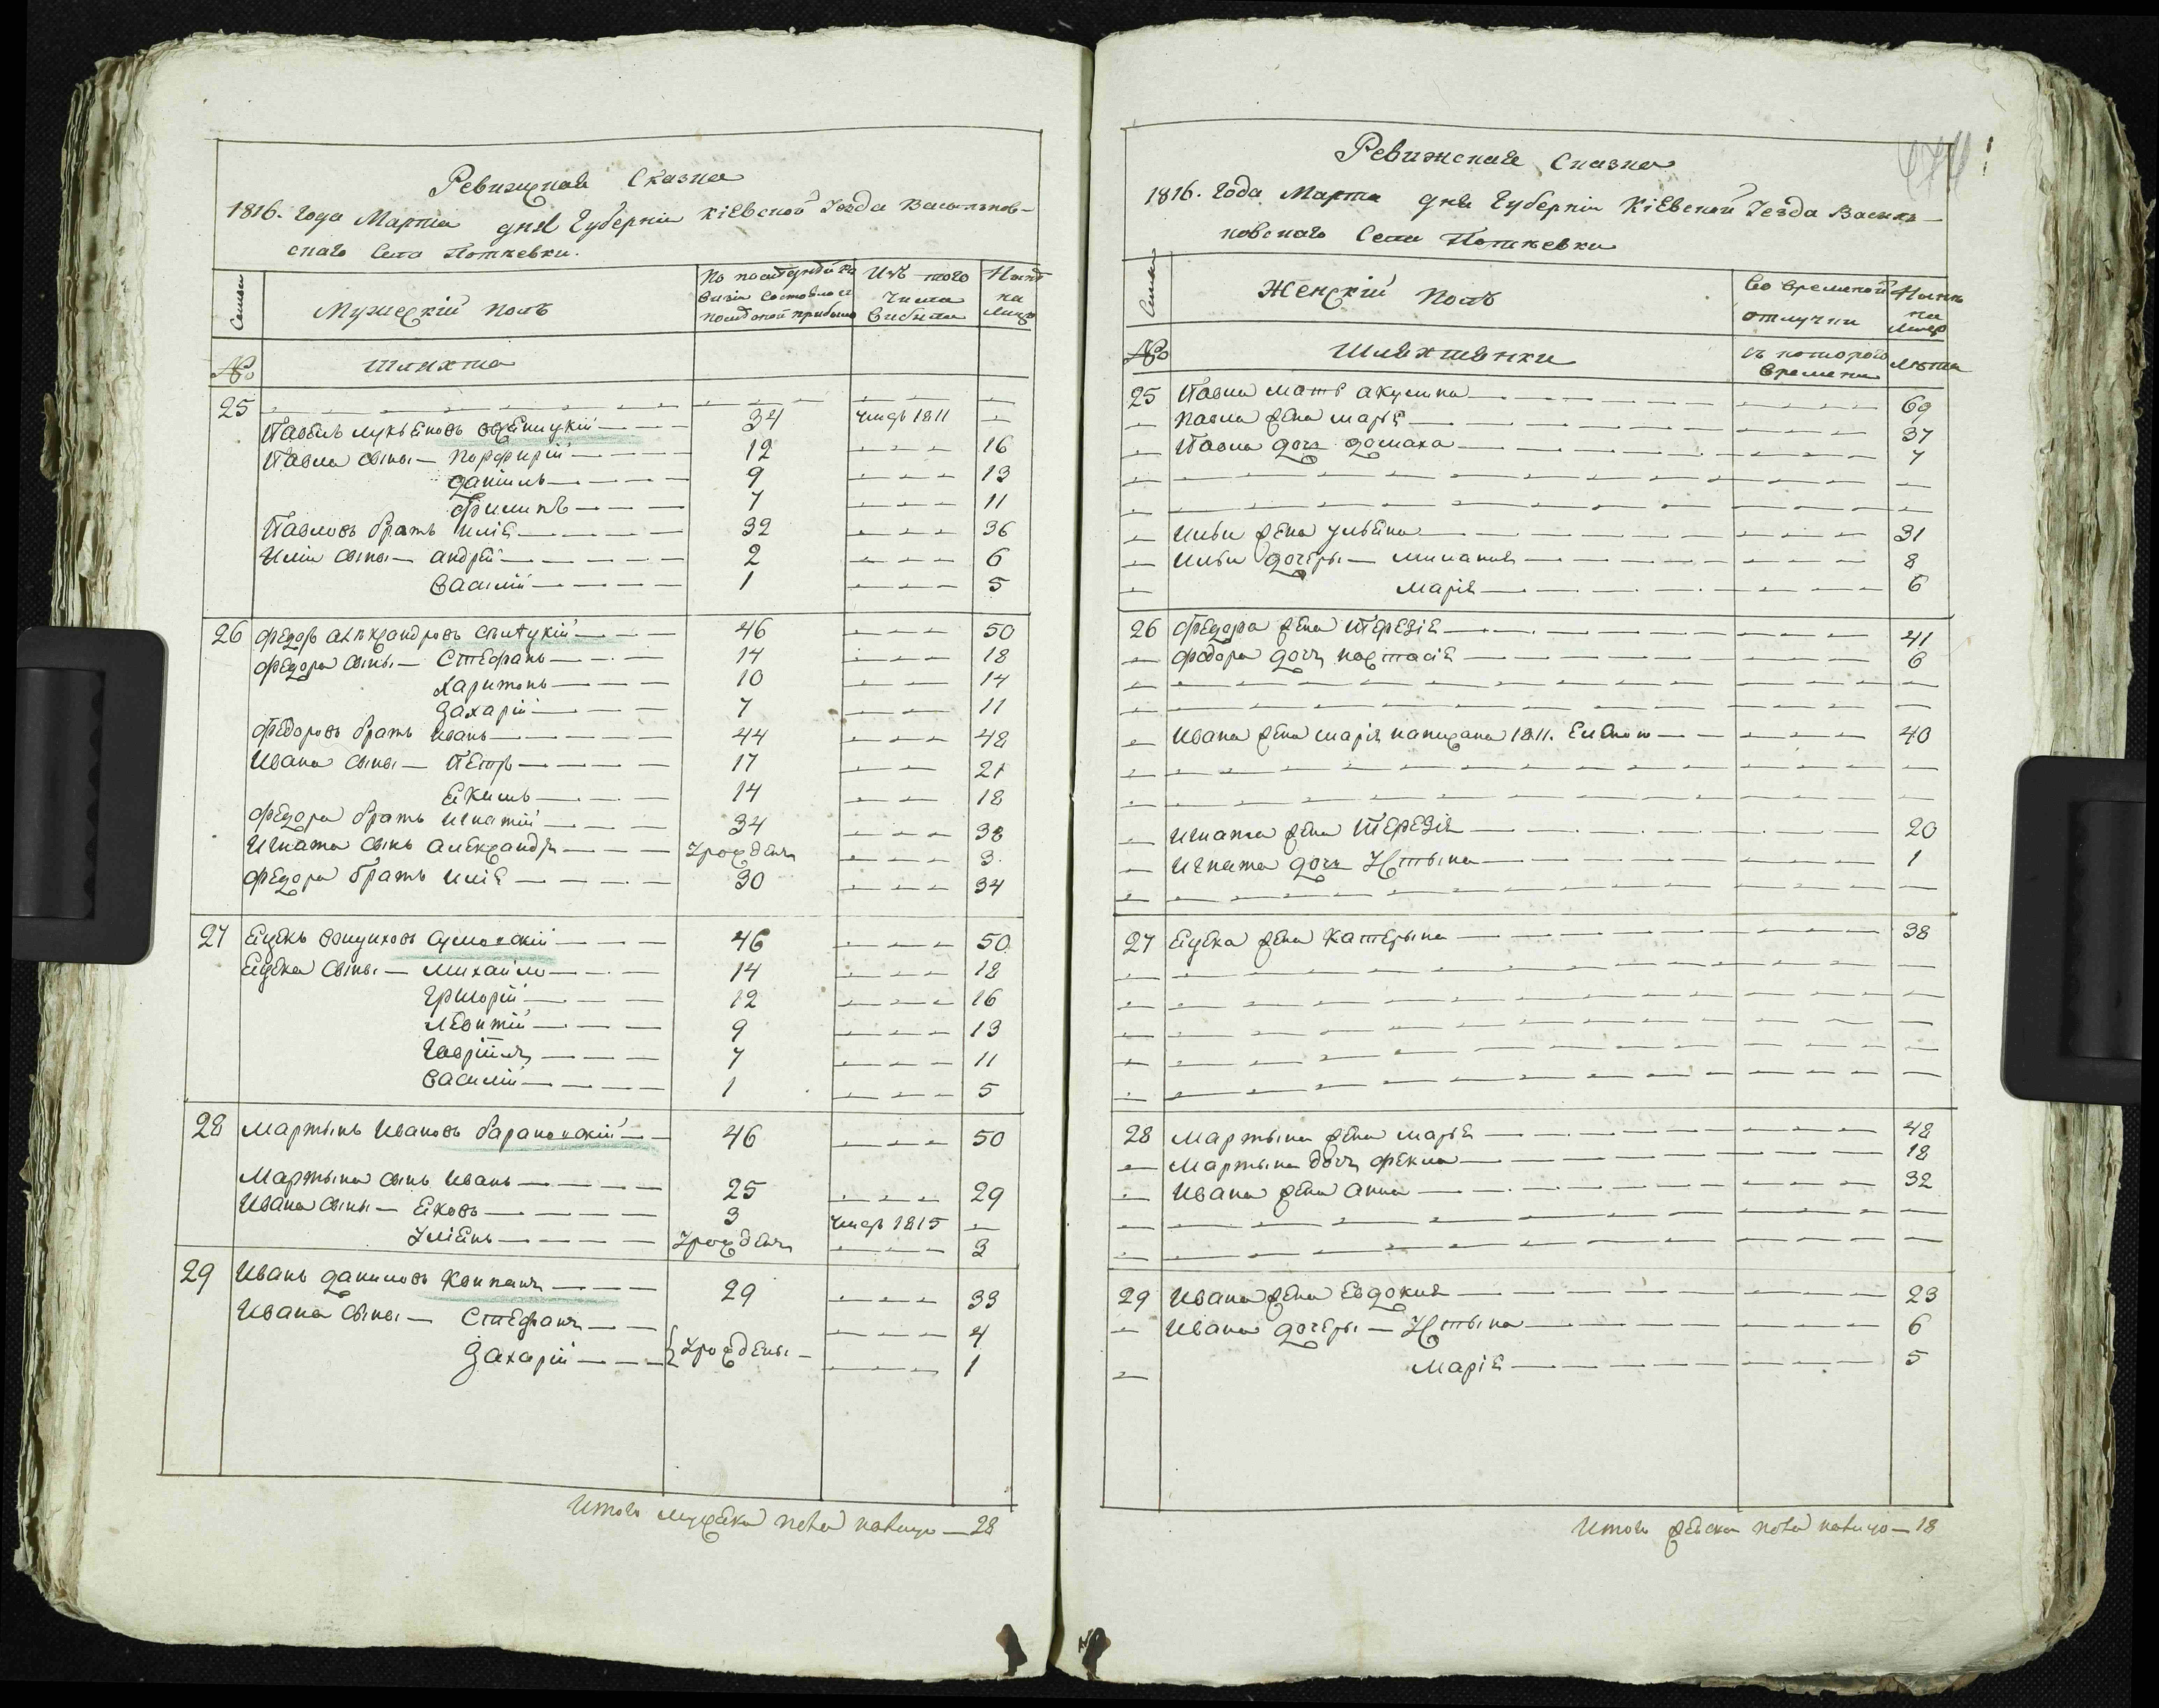 Ревижская Сказка
1816. Года Марта дня Губерніи Кіевской Уезда Васильков-
скаго Села Потіевки.
Семьи
Мужескій полъ
По последней ре
визіи состояло и
после оной прибыло
Изъ того
числа
выбыло
Ныне
на
лицо
№ Шляхта
25
Павелъ Лукьяновъ 34 умеръ 1811 —
Павла сыны — Порфирій 12 16
Даніилъ 9 13
Филипъ 7 11
Павловъ братъ Илія 32 36
Иліи сыны — Андрей 2 6
Василій 1 5
26 Федоръ Александровъ 46 50
Федора сыны — Стефанъ 14 18
Харитонъ 10 14
Захарій 7 11
Федоровъ братъ Иванъ 44 48
Ивана сыны — Петръ 17 21
Екимъ 14 18
Федора братъ Игнатій 34 38
Игната сынъ Александръ урожденъ 3
Федора братъ Илія 30 34
27 46 50
сыны — Михайло 14 18
Григорій 12 16
Леонтій 9 13
Гавріилъ 7 11
Василій 1 5
28 Мартынъ Ивановъ Барановскій 46 50
Мартына сынъ Иванъ 25 29
Ивана сыны — Яковъ 3 умеръ 1815 —
Уліянъ урожденъ 3
29 Иванъ Даниловъ 29 33
Ивана сыны — Стефанъ 4
Захарій урождены — 1
Итого мужеска пола налицо — 28
Ревижская Сказка
1816. Года Марта дня Губерніи Кіевской Уезда Василь-
ковскаго Села Потіевки
Семьи
Женскій полъ
Во временной
отлучки
Ныне
на
лицо
№ Шляхтянки
съ которого
времени
лета
25 Павла мать Акулина 69
— Павла жена Марья 37
— Павла дочь Домаха 7
— Ильи жена Ульяна 31
— Ильи дочеры — Миланія 8
— Марія 6
26 Федора жена Терезія 41
— Федора дочь Настасія 6
— Ивана жена Марія написана 1811. 40
— Игната жена Терезія 20
— Игната дочь Устына 1
27 жена Катерына 38
28 Мартына жена Марья 48
— Мартына дочь Фекла 18
— Ивана жена Анна 32
29 Ивана жена Евдокия 23
— Ивана дочеры — Устына 6
— Марія 5
Итого женска пола налицо — 18